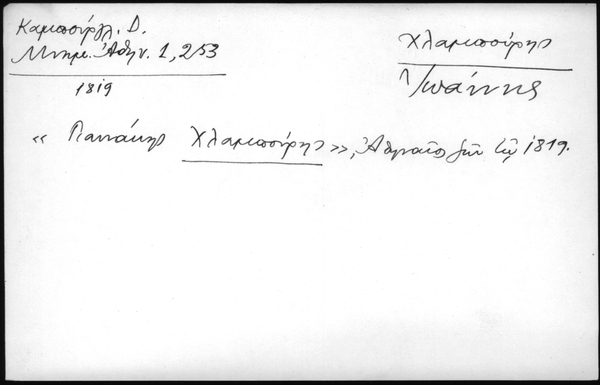 Καμπούρογλ. Δ.
Μνημ. Ἀθην. 1, 253
1819
Χλαμπούρης
Ἰωάννης
« Γιαννάκης Χλαμπούρης », Ἀθηναῖος ζῶν τῷ 1819.